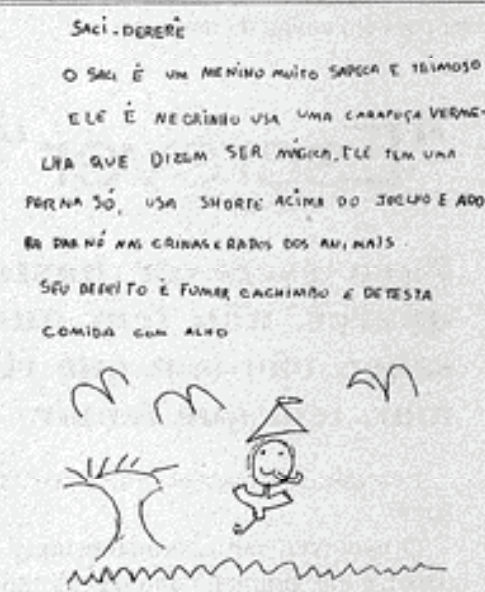 SACI-DERERÊ
O SACI É UM MENINO MUITO SAPECA E TEIMOSO
ELE É NEGRINHO USA UMA CARAPUÇA VERME-
LHA QUE DIZEM SER MÁGICA, ELE TEM UMA
PERNA SÓ, USA SHORTE ACIMA DO JOELHO E ADO
RA DAR NÓ NAS CRINAS E RABOS DOS ANIMAIS.
SEU DEFEITO É FUMAR CACHIMBO E DETESTA
COMIDA COM ALHO